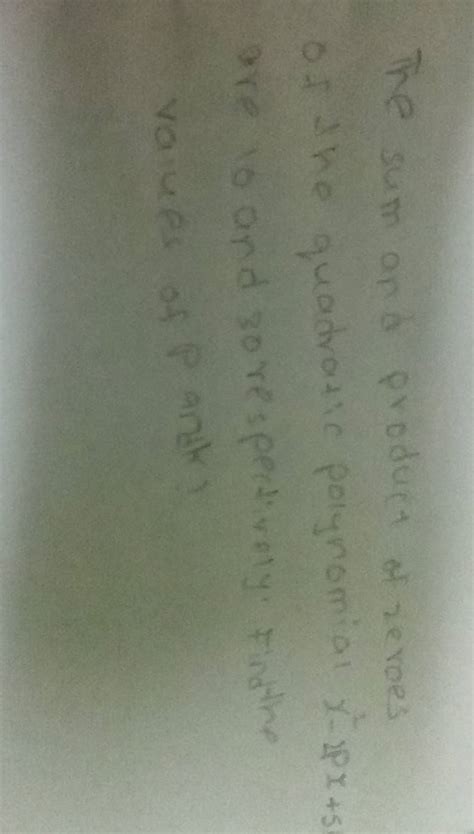 The sum and product of zeroes
of the quadratic polynomial x²-2px+5
are 10 and 30 respectively. find the
values of p and k?